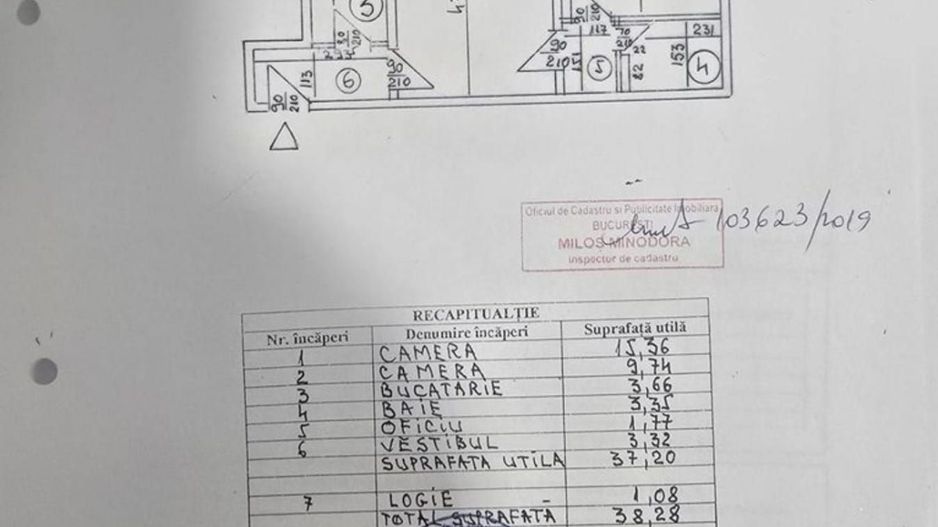 3
80
210
90
210
117
70
210
22
231
153
4
90
210
151
5
82
2
113
6
90
210
90
210
Oficiul de Cadastru si Publicitate Imobiliara
BUCURESTI
MILOS MINODORA
inspector de cadastru
103623/2019
RECAPITUALȚIE
Nr. încăperi Denumire încăperi Suprafață utilă
1 CAMERA 15,36
2 CAMERA 9,74
3 BUCATARIE 3,66
4 BAIE 3,35
5 OFICIU 1,77
6 VESTIBUL 3,32
SUPRAFATA UTILA 37,20
7 LOGIE - 1,08
TOTAL SUPRAFATA 38,28